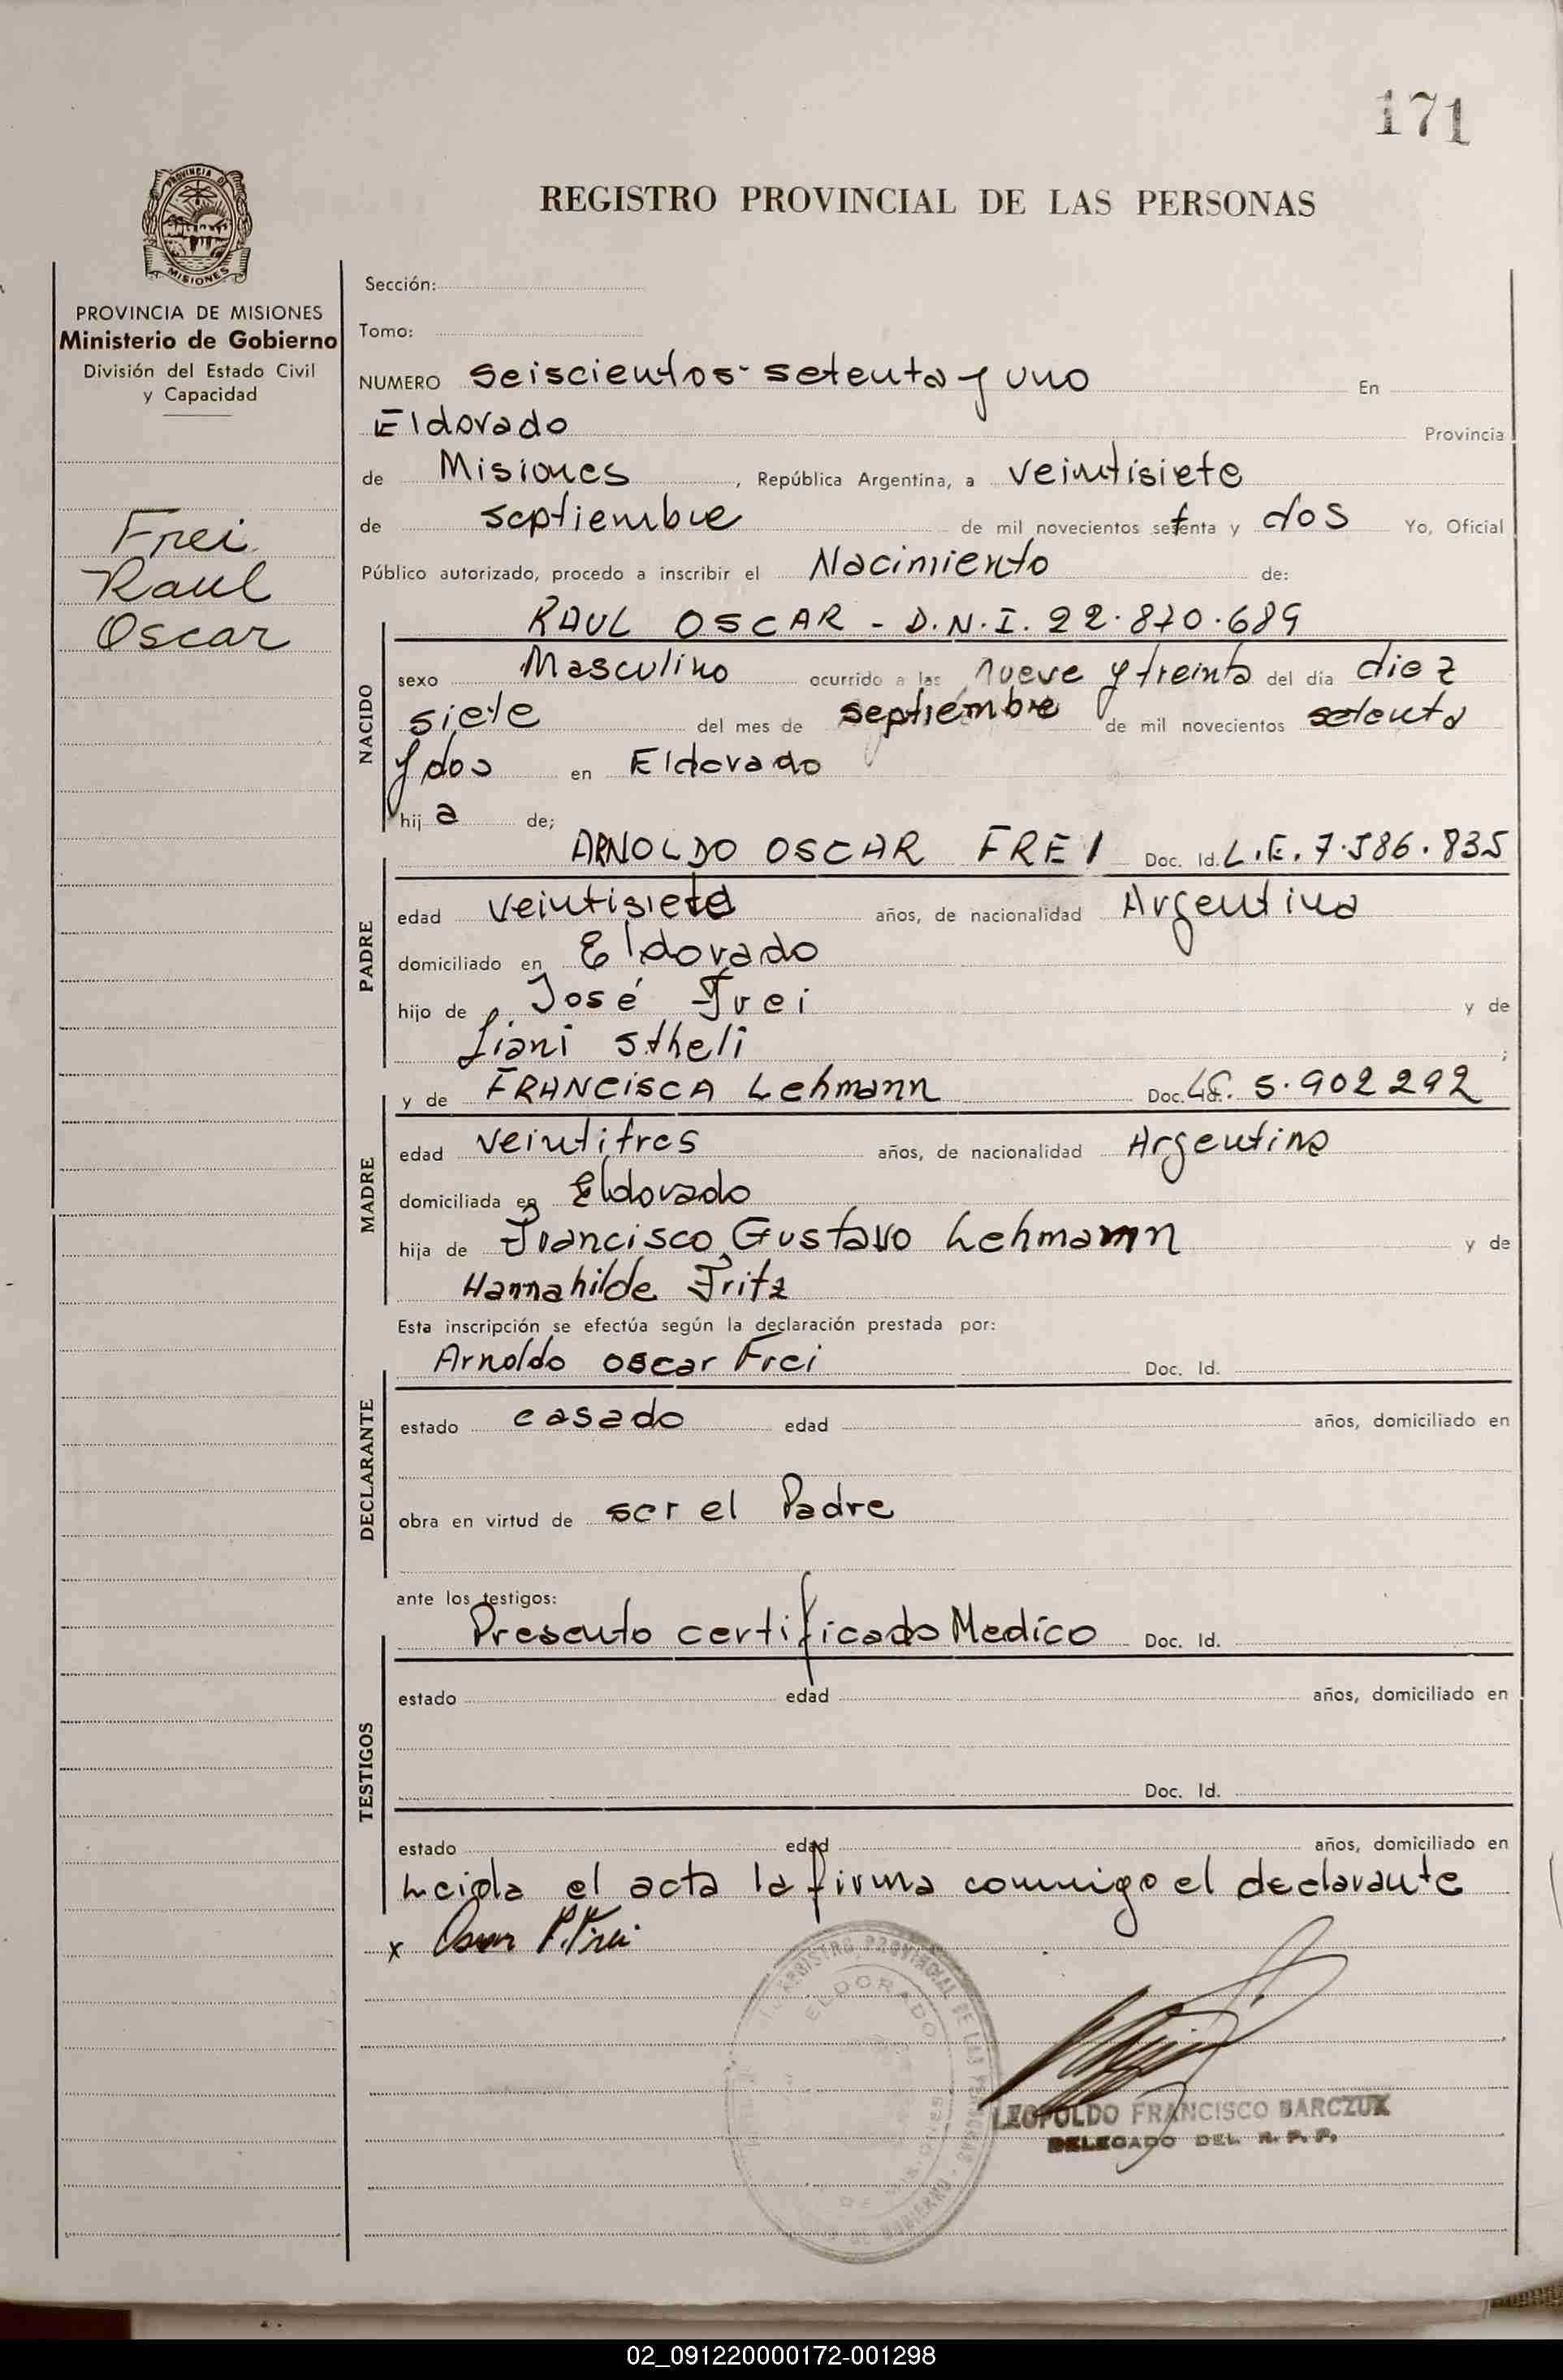 171
PROVINCIA DE
MISIONES
REGISTRO PROVINCIAL DE LAS PERSONAS
PROVINCIA DE MISIONES
Ministerio de Gobierno
División del Estado Civil
y Capacidad
Frei
Raul
Oscar
Sección:
Tomo:
NUMERO Seiscientos setenta y uno En
Eldorado Provincia
de Misiones, República Argentina, a veintisiete
de septiembre de mil novecientos setenta y dos Yo, Oficial
Público autorizado, procedo a inscribir el Nacimiento de:
NACIDO
RAUL OSCAR - D.N.I. 22.870.689
sexo Masculino ocurrido a las nueve y treinta del día diez
siete del mes de septiembre de mil novecientos setenta
y dos en Eldorado
hij a de;
PADRE
ARNOLDO OSCAR FREI Doc. Id. L.E. 7.586.835
edad veintisiete años, de nacionalidad Argentina
domiciliado en Eldorado
hijo de José Frei y de
Liani Stheli ;
MADRE
y de FRANCISCA Lehmann Doc. 5.902292
edad veintitres años, de nacionalidad Argentina
domiciliada en Eldorado
hija de Francisco Gustavo Lehmann y de
Hannahilde Fritz
Esta inscripción se efectúa según la declaración prestada por:
DECLARANTE
Arnoldo oscar Frei Doc. Id.
estado casado edad años, domiciliado en
obra en virtud de ser el Padre
ante los testigos:
TESTIGOS
Presento certificado Medico Doc. Id.
estado edad años, domiciliado en
Doc. Id.
estado edad años, domiciliado en
Leida el acta la firma conmigo el declarante
x Oscar Frei
REGISTRO PROVINCIAL DE LAS PERSONAS
ELDORADO
LEOPOLDO FRANCISCO BARCZUK
DELEGADO DEL R. P. P.
02_091220000172-001298